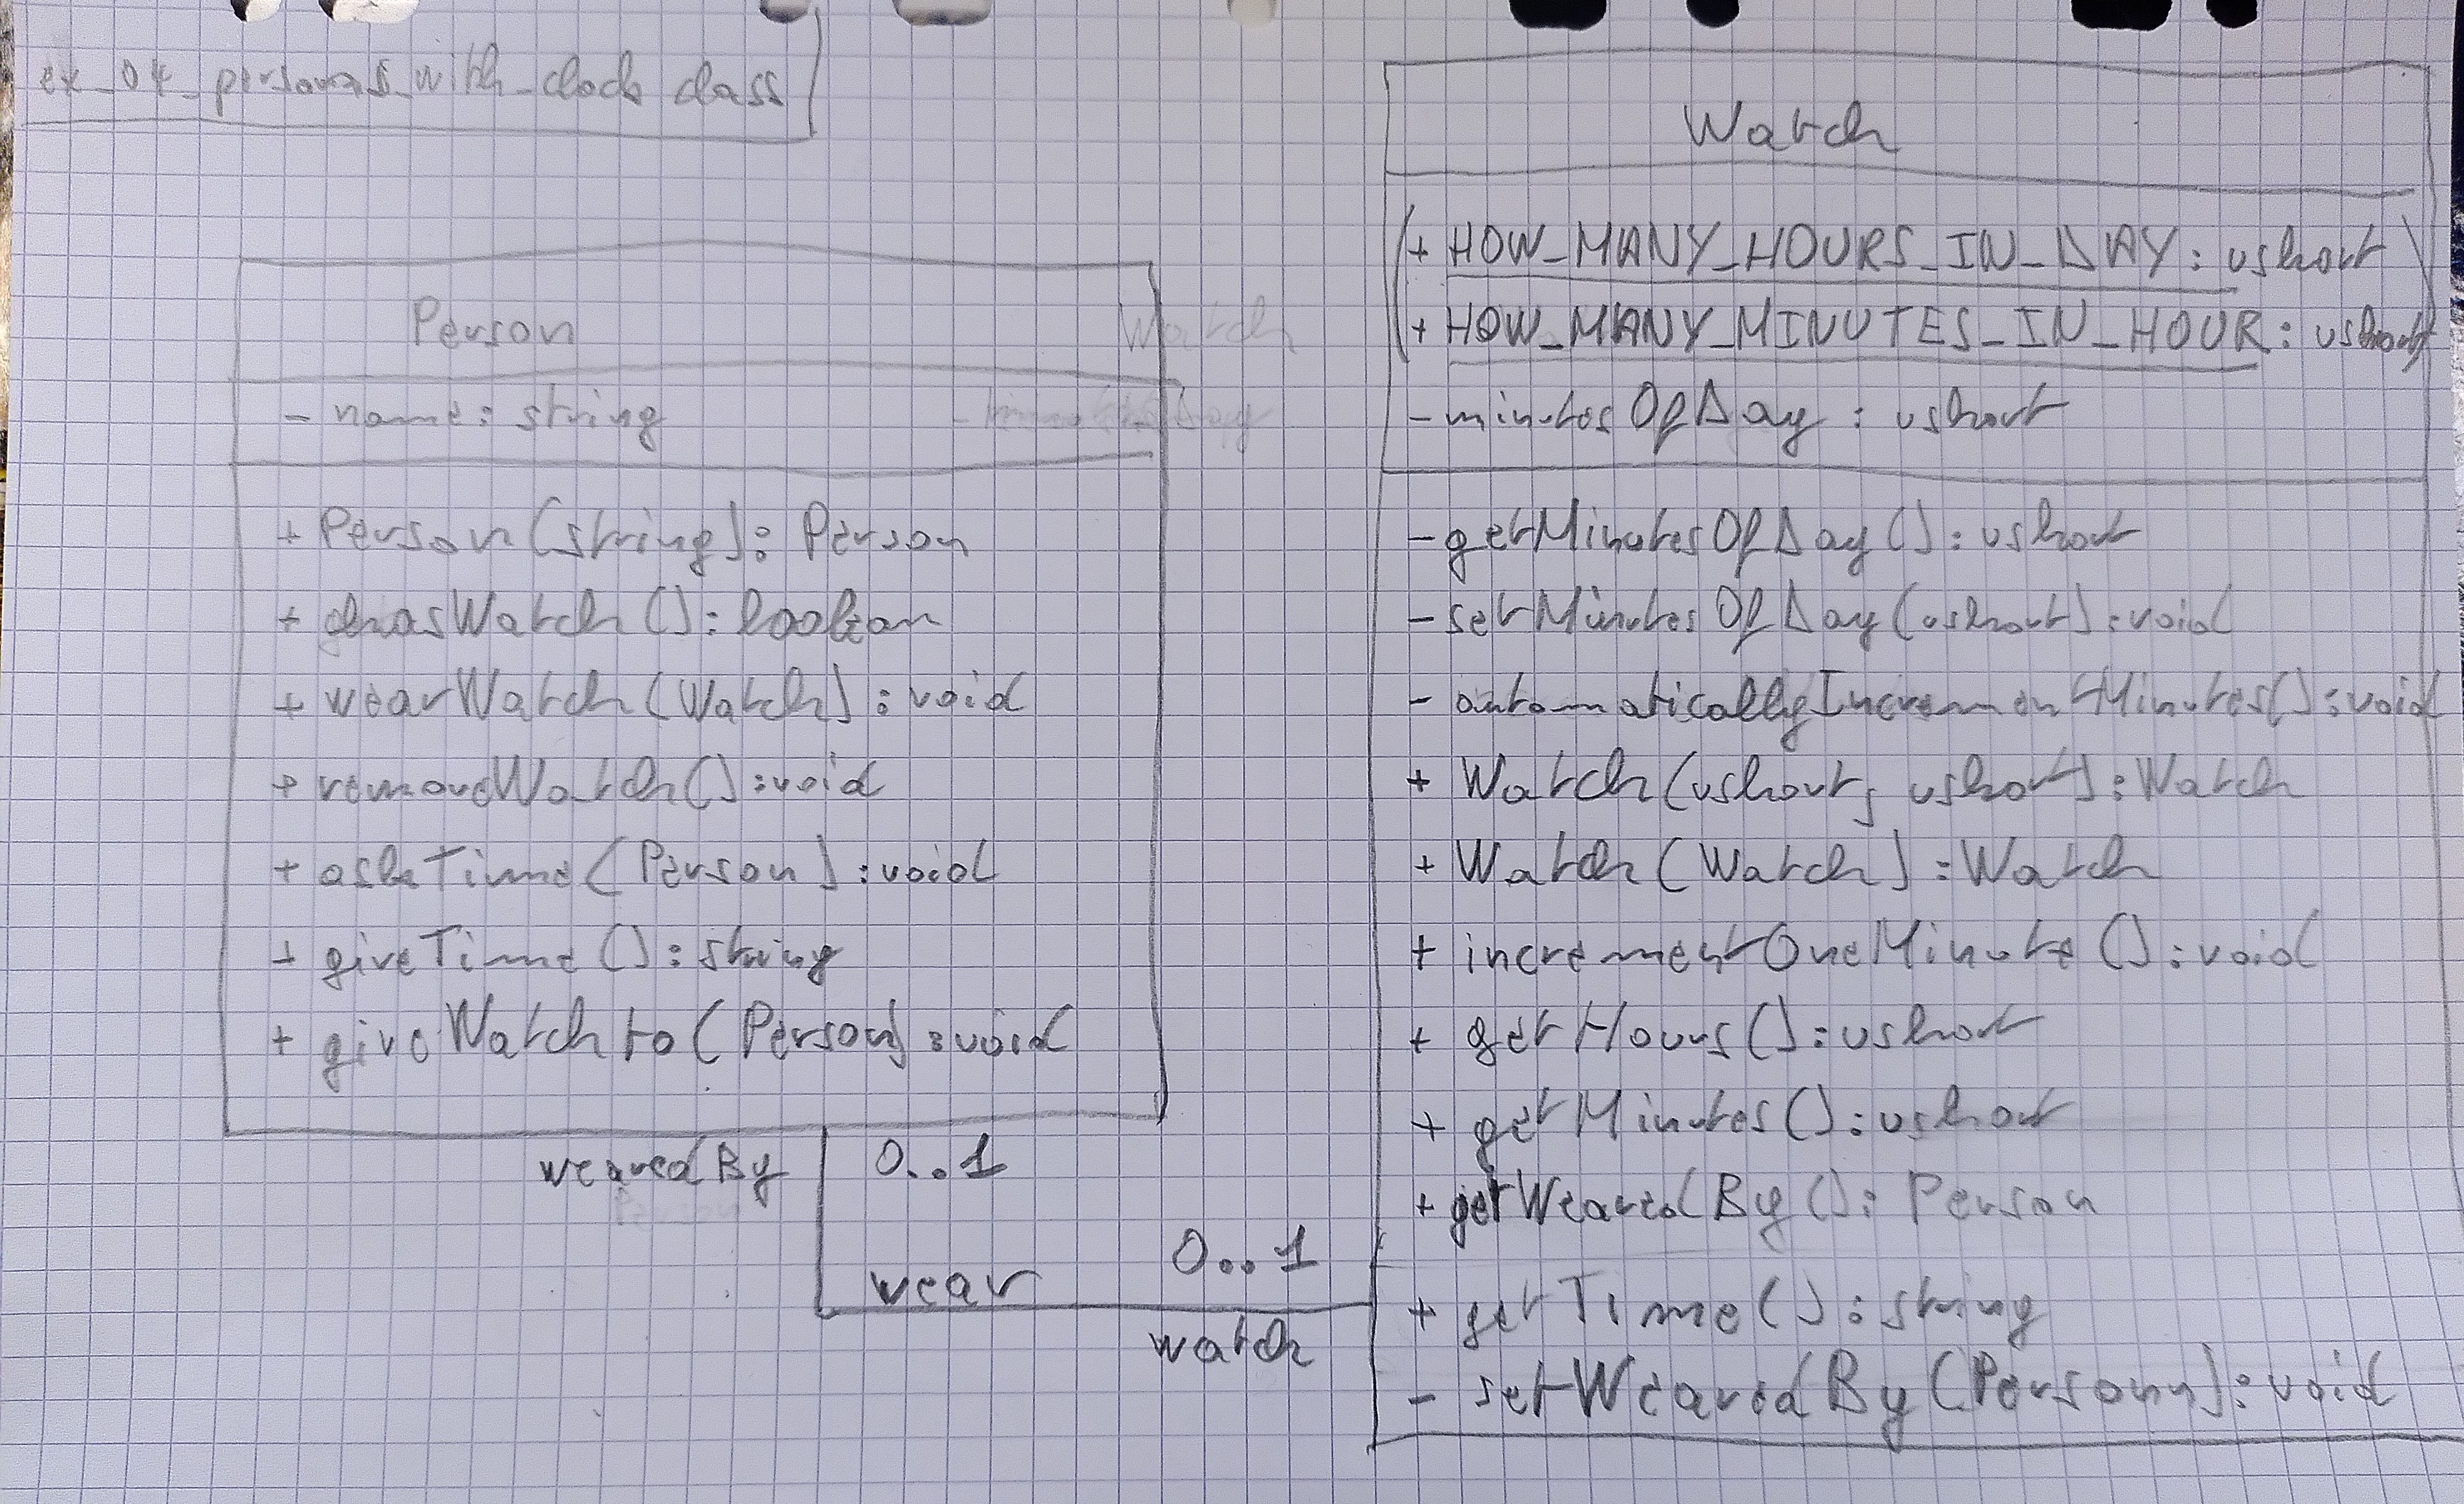 ex_04_persons_with_clock class
Person
- name: string
+ Person(string): Person
+ hasWatch(): boolean
+ wearWatch(Watch): void
+ removeWatch(): void
+ askTime(Person): void
+ giveTime(): string
+ giveWatchto(Person): void
wearedBy 0..1
wear 0..1
watch
Watch
(+ HOW_MANY_HOURS_IN_DAY: ushort)
(+ HOW_MANY_MINUTES_IN_HOUR: ushort)
- minutesOfDay: ushort
- getMinutesOfDay(): ushort
- setMinutesOfDay(ushort): void
- automaticallyIncrementMinutes(): void
+ Watch(ushort, ushort): Watch
+ Watch(Watch): Watch
+ incrementOneMinute(): void
+ getHours(): ushort
+ getMinutes(): ushort
+ getWearedBy(): Person
+ getTime(): string
- setWearedBy(Person): void